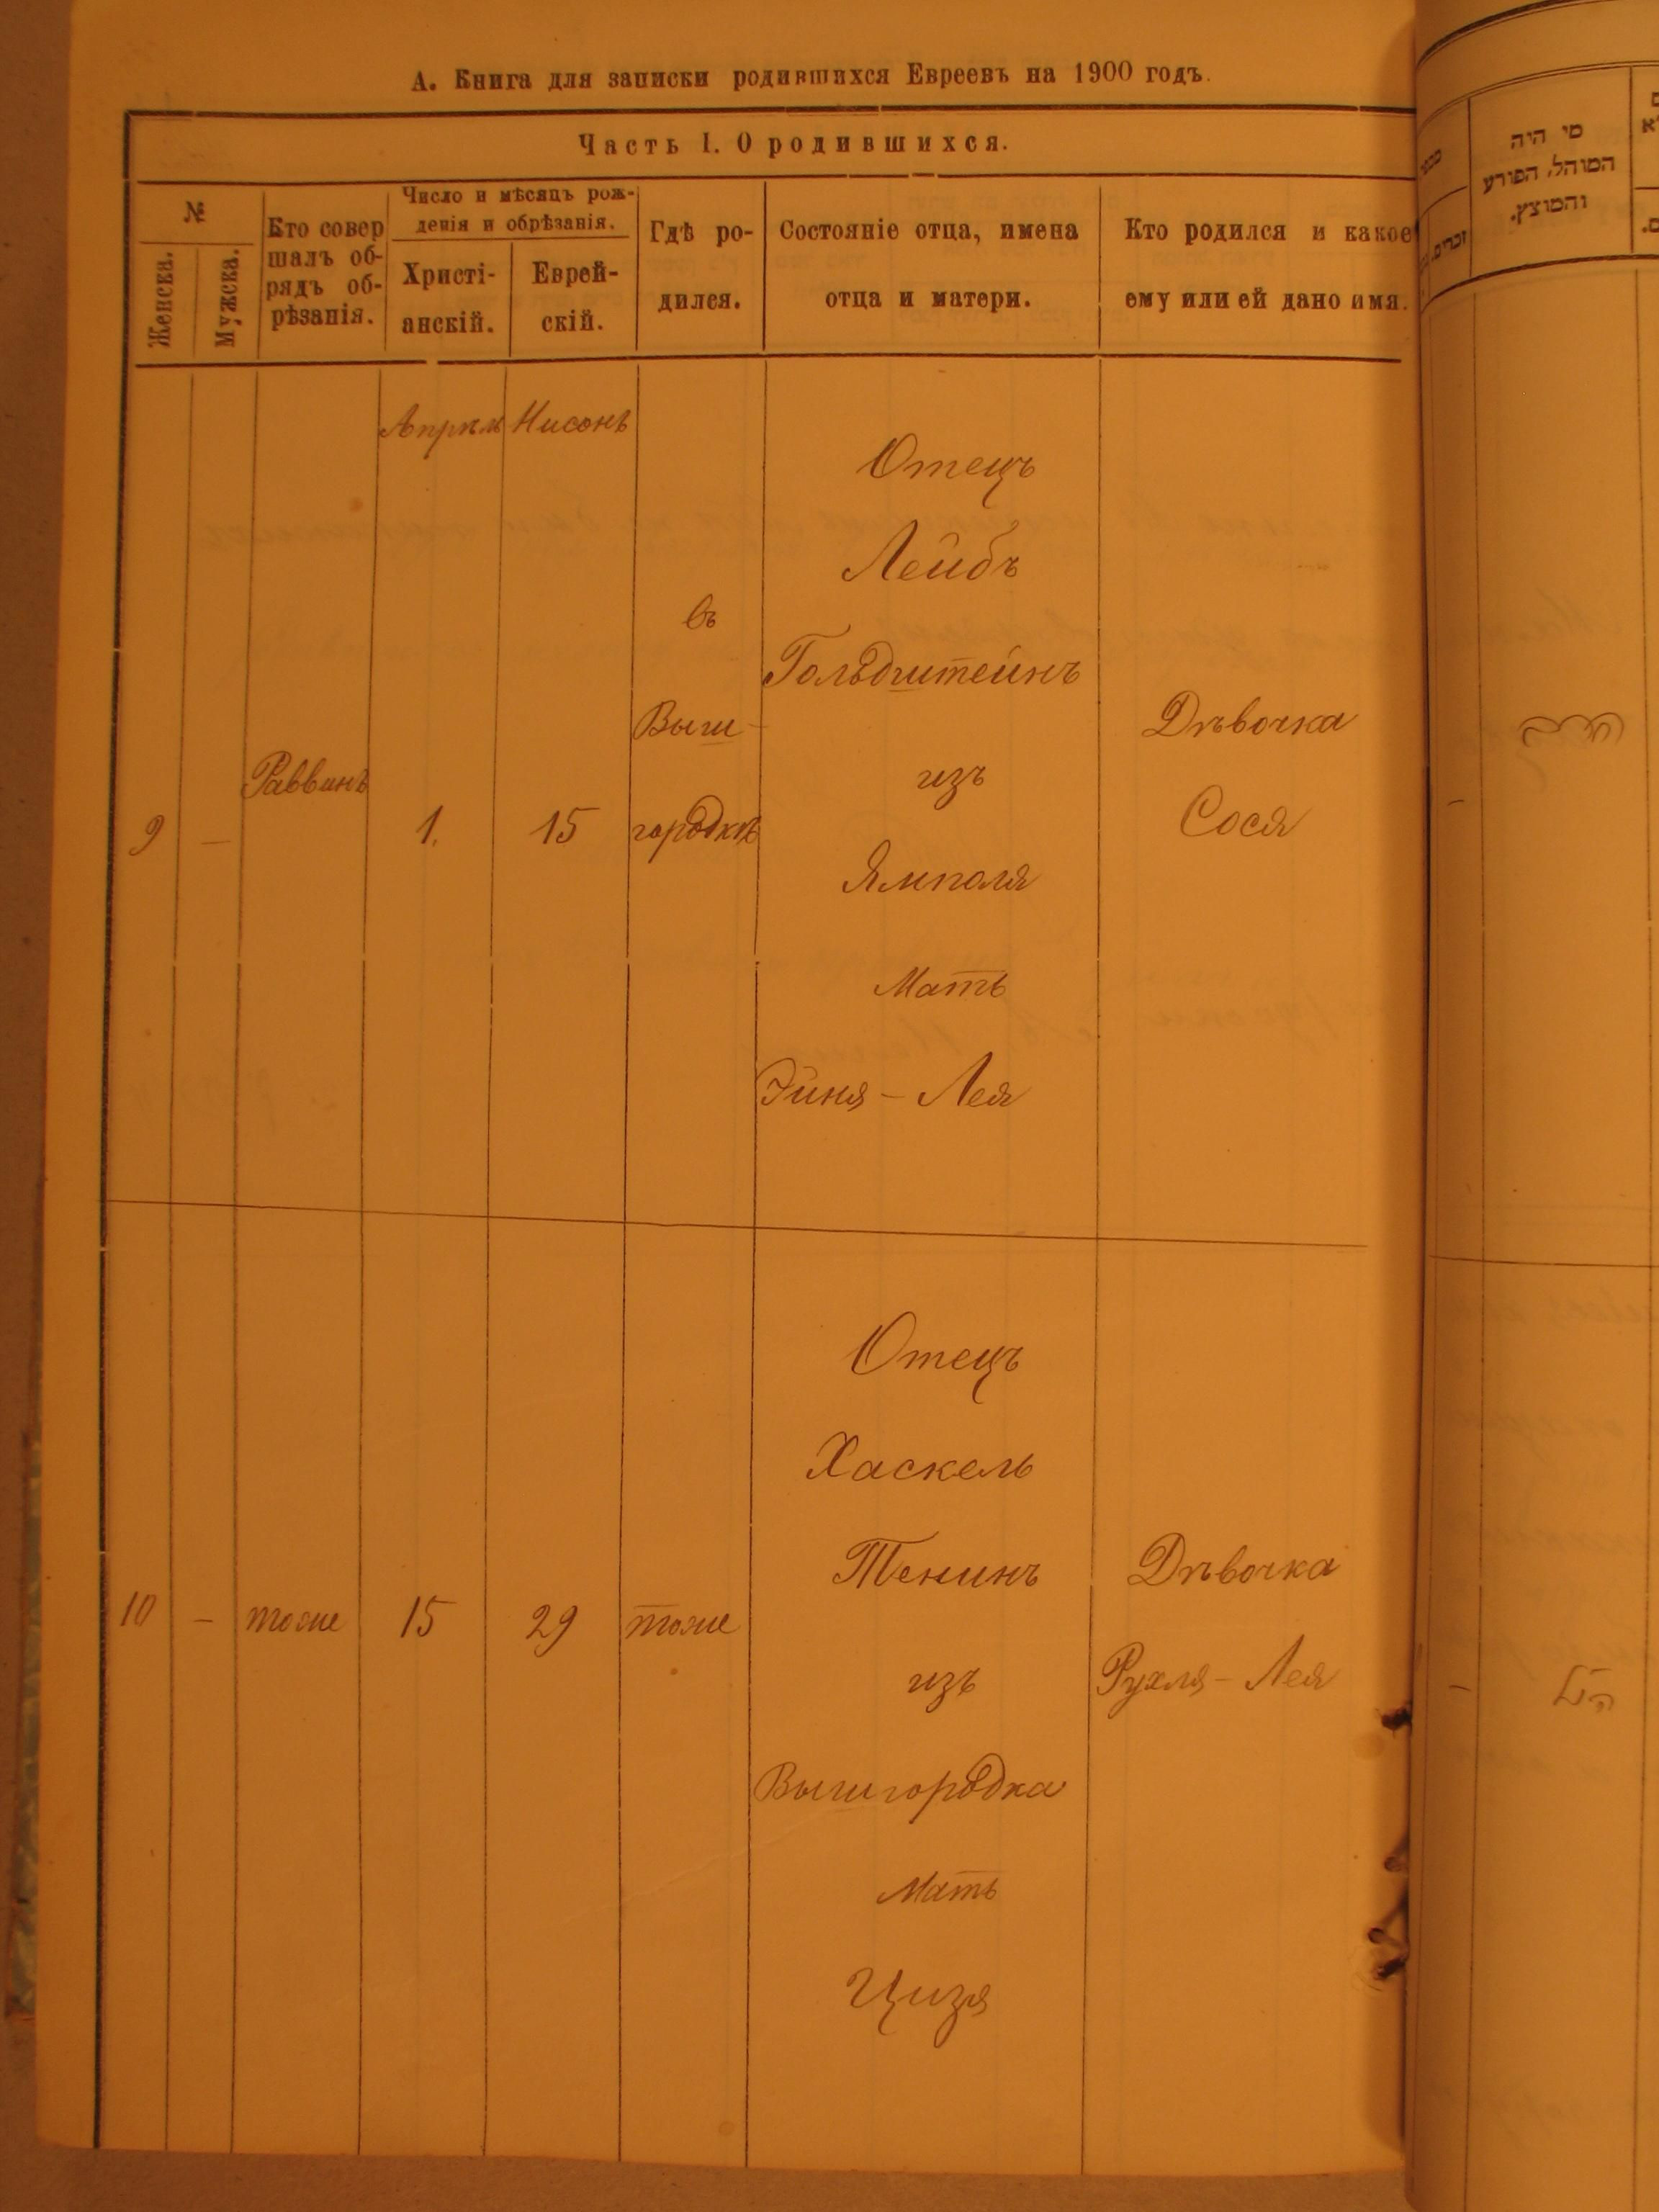 А. Книга для записки родившихся Евреевъ на 1900 годъ.
Часть I. О родившихся.
№
Женска.
Мужска.
Кто совер
шалъ об-
рядъ об-
рѣзанія.
Число и мѣсяцъ рож-
денія и обрѣзанія.
Христі-
анскій.
Еврей-
скій.
Гдѣ ро-
дился.
Состояніе отца, имена
отца и матери.
Кто родился и какое
ему или ей дано имя.
Нисонъ
9
—
Раввинъ
1.
15
въ
Выш-
городкѣ
Отецъ
Лейбъ
Гольдштейнъ
изъ
Ямполя
Мать
Эйня - Лея
Дѣвочка
Сося
10
—
тоже
15
29
тоже
Отецъ
Хаскель
Тенинъ
изъ
Вышгородка
Мать
Цизя
Дѣвочка
Рухля - Лея
מי היה
המוהל, הפורע
והמוצץ.
זכרים.